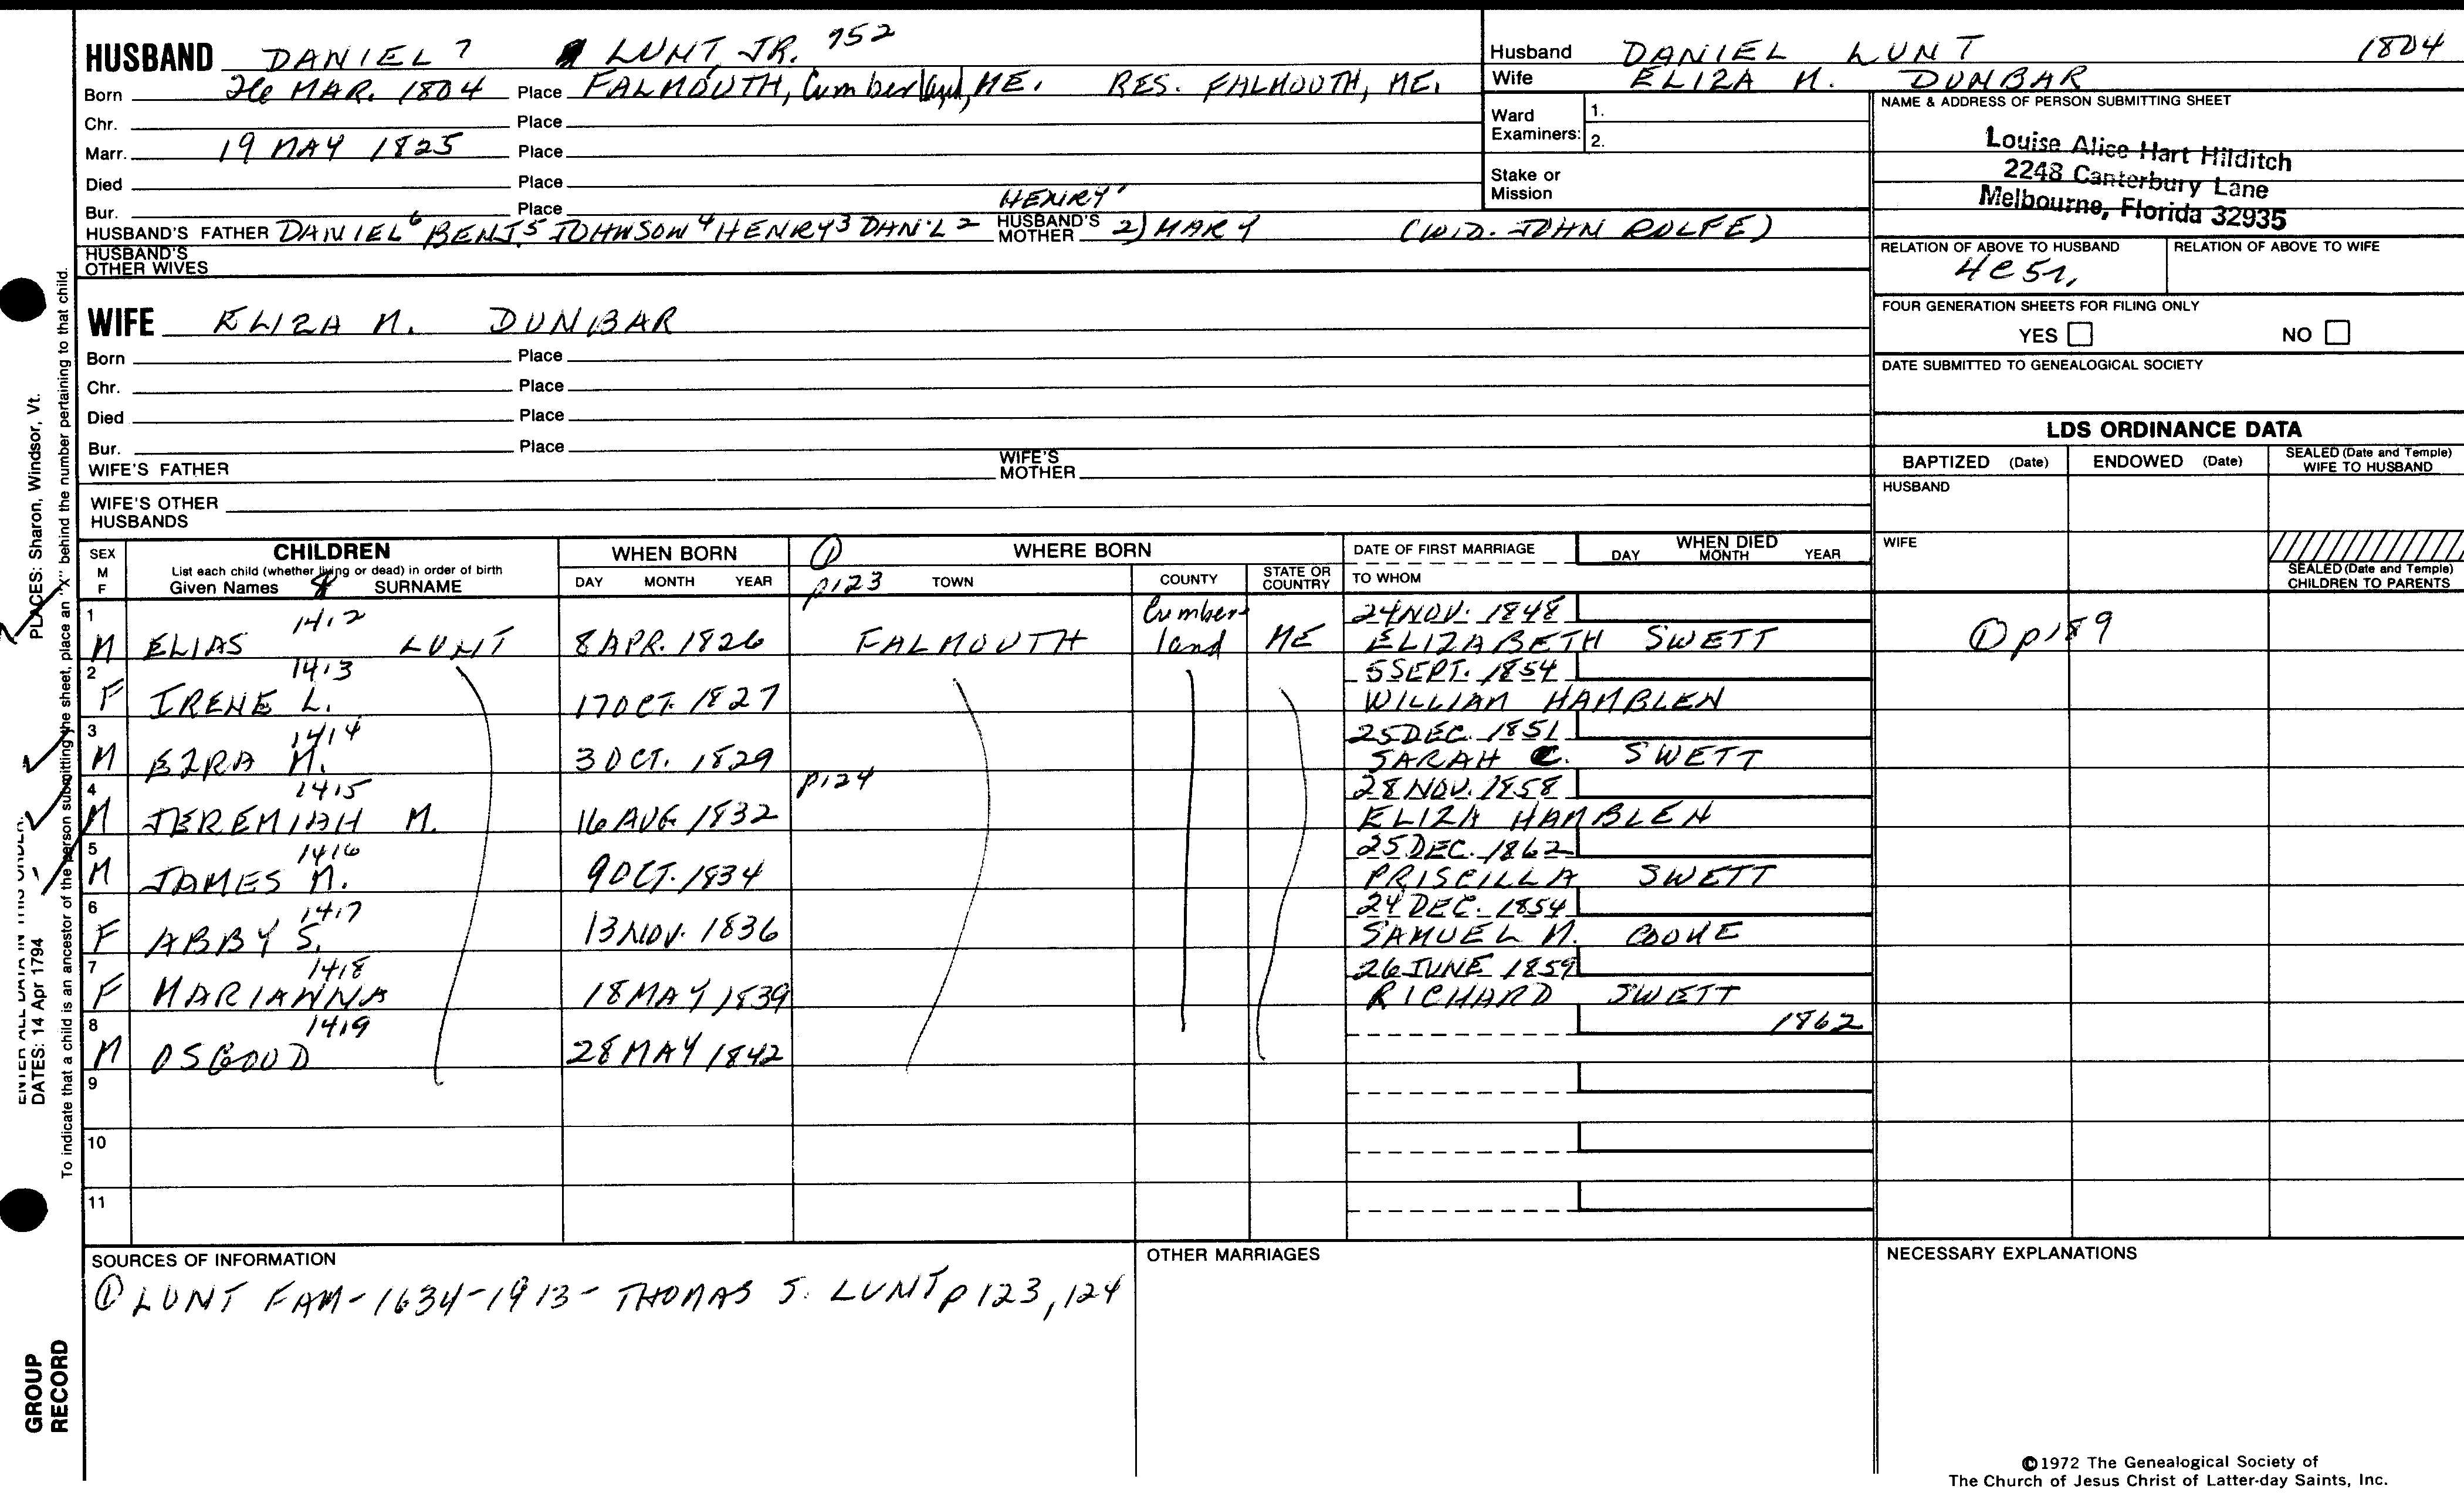 HUSBAND DANIEL 7 LUNT, JR. 752
Born 26 MAR. 1804 Place FALMOUTH, Cumberland, ME. RES. FALMOUTH, ME.
Chr. Place
Marr. 19 MAY 1825 Place
Died Place
Bur. Place
HUSBAND'S FATHER DANIEL 6 BENJ. 5 JOHNSON 4 HENRY 3 DAN'L 2 HENRY 1 HUSBAND'S MOTHER 2) MARY (WID. JOHN ROLFE)
HUSBAND'S OTHER WIVES
WIFE ELIZA M. DUNBAR
Born Place
Chr. Place
Died Place
Bur. Place
WIFE'S FATHER WIFE'S MOTHER
WIFE'S OTHER HUSBANDS
Husband DANIEL LUNT 1804
Wife ELIZA M. DUNBAR
Ward Examiners: 1.
2.
Stake or Mission
NAME & ADDRESS OF PERSON SUBMITTING SHEET
Louise Alice Hart Hilditch
2248 Canterbury Lane
Melbourne, Florida 32935
RELATION OF ABOVE TO HUSBAND RELATION OF ABOVE TO WIFE
4C5R,
FOUR GENERATION SHEETS FOR FILING ONLY
YES NO
DATE SUBMITTED TO GENEALOGICAL SOCIETY
LDS ORDINANCE DATA
BAPTIZED (Date) ENDOWED (Date) SEALED (Date and Temple) WIFE TO HUSBAND
HUSBAND
WIFE
SEALED (Date and Temple) CHILDREN TO PARENTS
SEX M F CHILDREN List each child (whether living or dead) in order of birth Given Names SURNAME
WHEN BORN DAY MONTH YEAR
① p123 WHERE BORN TOWN COUNTY STATE OR COUNTRY
DATE OF FIRST MARRIAGE TO WHOM
WHEN DIED DAY MONTH YEAR
1 1412 Cumber- 24 NOV. 1848
M ELIAS LUNT 8 APR. 1826 FALMOUTH land ME ELIZABETH SWETT ① p189
2 1413 5 SEPT. 1854
F IRENE L. 17 OCT. 1827 WILLIAM HAMBLEN
3 1414 25 DEC. 1851
M EZRA M. 3 OCT. 1829 SARAH C. SWETT
4 1415 p124 28 NOV. 1858
M JEREMIAH M. 16 AUG 1832 ELIZA HAMBLEN
5 1416 25 DEC. 1862
M JAMES M. 9 OCT. 1834 PRISCILLA SWETT
6 1417 24 DEC. 1854
F ABBY S. 13 NOV. 1836 SAMUEL M. COOKE
7 1418 26 JUNE 1859
F MARIANNA 18 MAY 1839 RICHARD SWETT
8 1419 1862
M OSGOOD 28 MAY 1842
9
10
11
SOURCES OF INFORMATION
① LUNT FAM - 1634-1913 - THOMAS S. LUNT p 123, 124
OTHER MARRIAGES
NECESSARY EXPLANATIONS
©1972 The Genealogical Society of
The Church of Jesus Christ of Latter-day Saints, Inc.
PLACES: Sharon, Windsor, Vt.
DATES: 14 Apr 1794
To indicate that a child is an ancestor of the person submitting the sheet, place an "X" behind the number pertaining to that child.
GROUP
RECORD